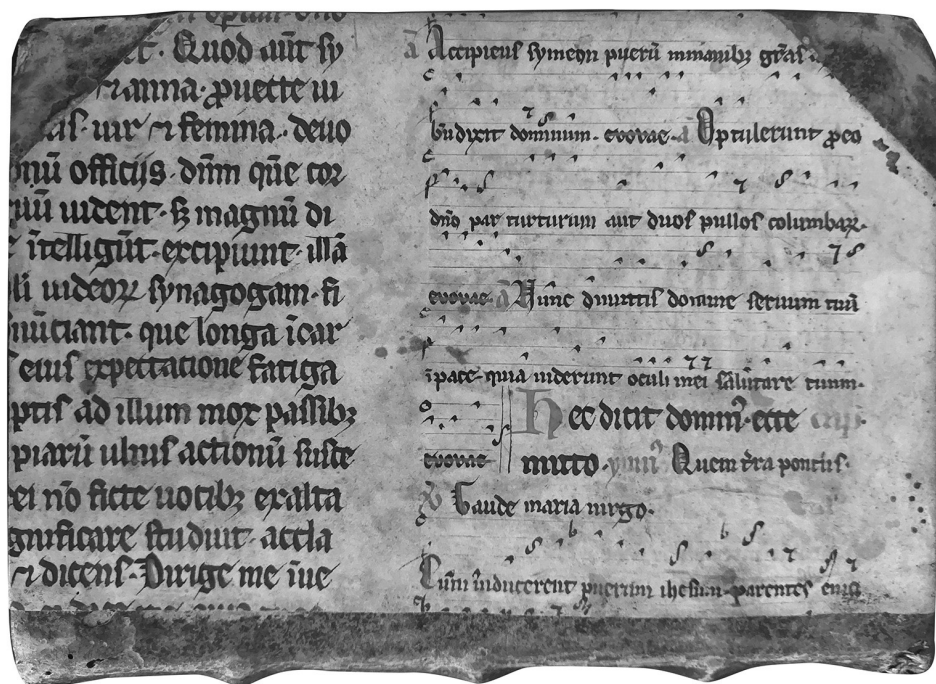 Quod aūt sy
⁊ anna· ꝓuecte ui
uir ⁊ femina· deuo
onū officijs· dnm̄ quē cor
uident· sꝫ magnū di
ītelligūt· excipiunt· illā
li uideoꝝ synagogam· fi
nūciant· que longa īcar
eius expectatione fatiga
ptis ad illum mox passibꝫ
piarū ulnis actionū suste
ei nō ficte uocibꝫ exalta
gnificare studuit· accla
⁊ dicens· Dirige me īue
a Accipiens symeon puerū inmanibꝫ grās·
bn̄dixit dominum· euouae· a Optulerunt ꝓeo
dn̄o par turturum aut duos pullos columbaꝝ·
euouae· a Nunc dimittis domine seruum tuū
īpace· quia uiderunt oculi mei salutare tuum·
euouae
Hec dicit dominꝰ· ecce
mitto· ymnꝰ Quem t̄ra pontus·
Gaude maria uirgo·
Cum inducerent puerum ihesum· parentes eius